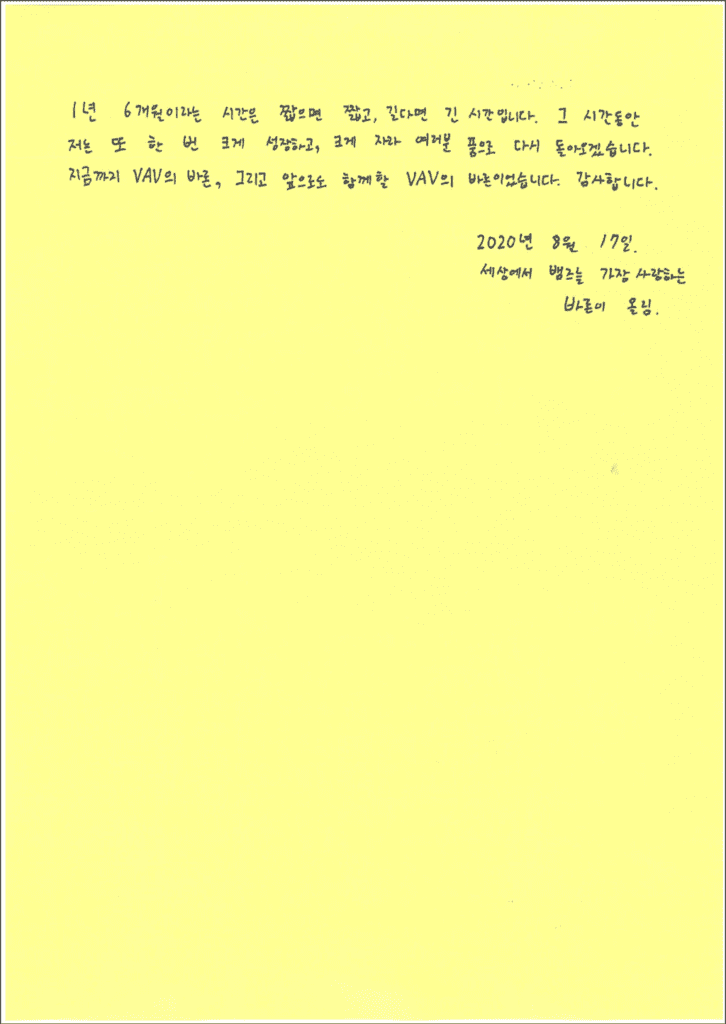 1년 6개월이라는 시간은 짧으면 짧고, 길다면 긴 시간입니다. 그 시간동안
저는 또 한 번 크게 성장하고, 크게 자라 여러분 품으로 다시 돌아오겠습니다.
지금까지 VAV의 바론, 그리고 앞으로도 함께할 VAV의 바론이었습니다. 감사합니다.
2020년 8월 17일.
세상에서 뱀즈늘 가장 사랑하는
바론이 올림.